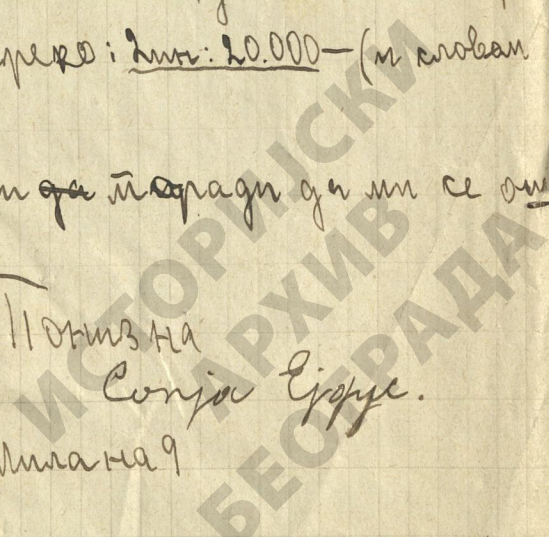 преко: Дин: 20.000— (и словом
и да ради да ми се
Понизна
Сонја Ејдус.
Милана 9
ИСТОРИЈСКИ
АРХИВ
БЕОГРАДА